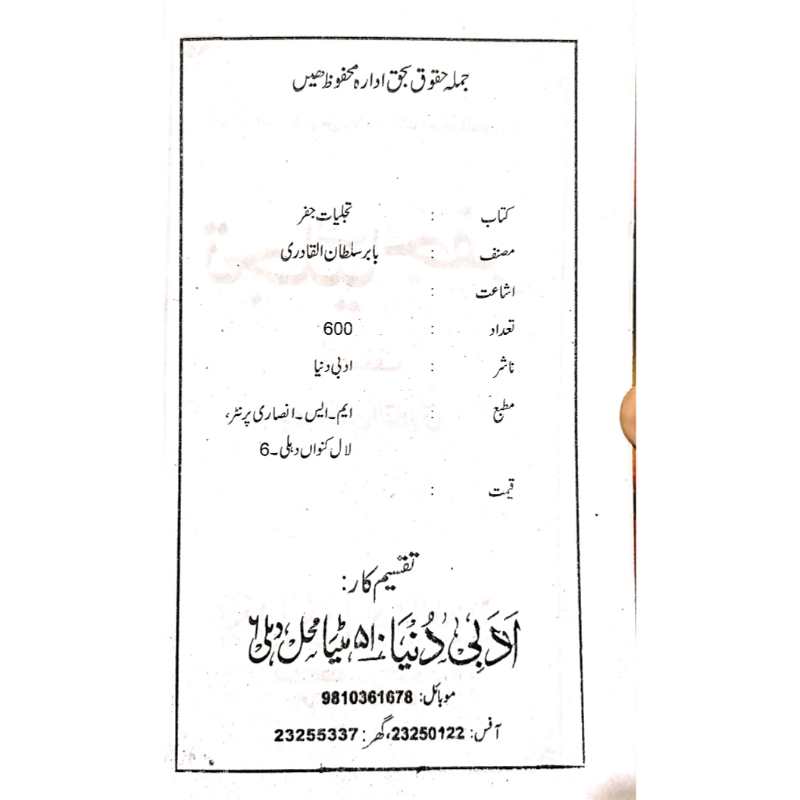 جملہ حقوق بحق ادارہ محفوظ ھیں
کتاب : تجلیات جفر
مصنف : بابر سلطان القادری
اشاعت :
تعداد : 600
ناشر : ادبی دنیا
مطبع : ایم۔ایس۔انصاری پرنٹر،
لال کنواں دہلی۔6
قیمت :
تقسیم کار:
اَدَبی دُنیَا ۵۱۰ مٹیا محل دہلی ۶
موبائل: 9810361678
آفس: 23250122، گھر: 23255337